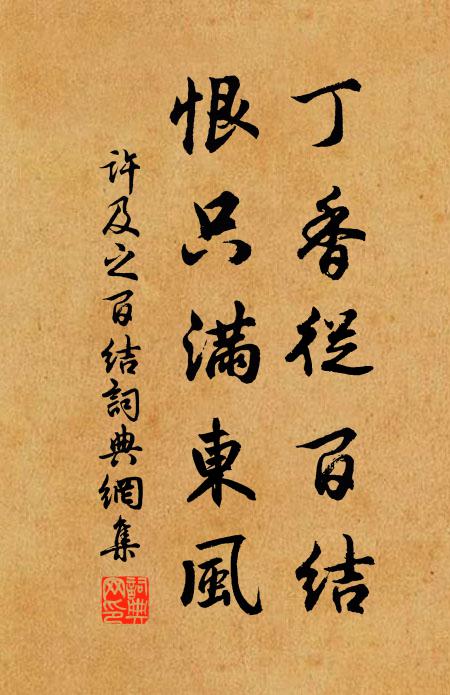 丁香從百結
恨只滿東風
许及之百结詞典網集
詞典网印